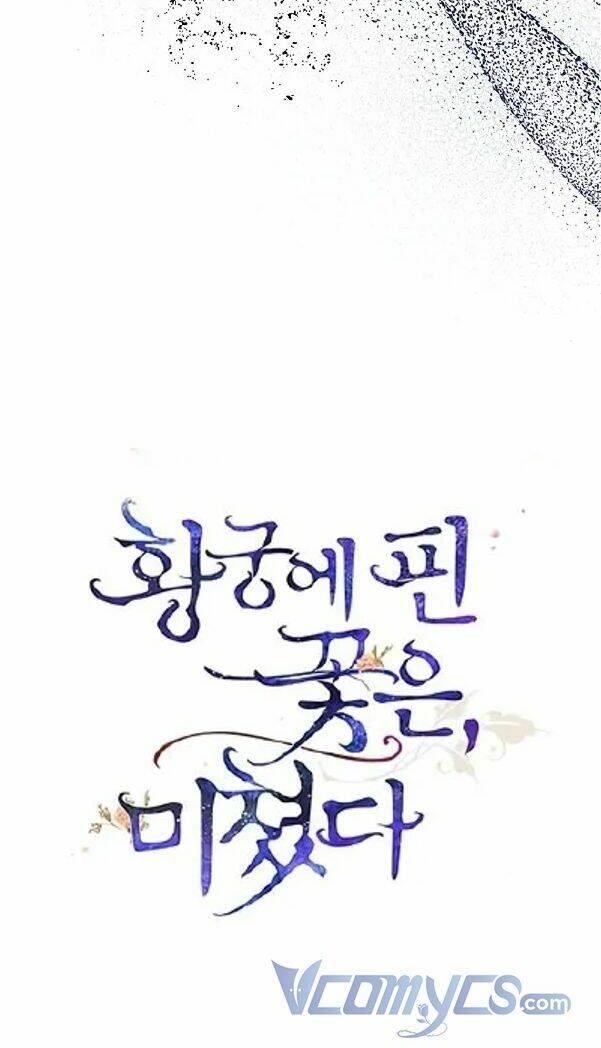 황궁에 핀
꽃은,
미쳤다
VCOMYCS.com